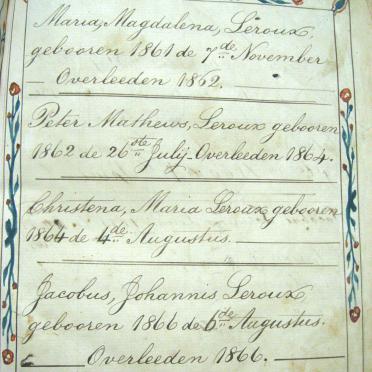 Maria, Magdalena, Leroux,
gebooren 1861 de 7de November
Overleeden 1862.
Peter Mathews, Leroux gebooren
1862 de 26ste Julij Overleeden 1864.
Christena, Maria Leroux gebooren
1864 de 4de Augustus.
Jacobus, Johannis Leroux
gebooren 1866 de 6de Augustus.
Overleeden 1866.